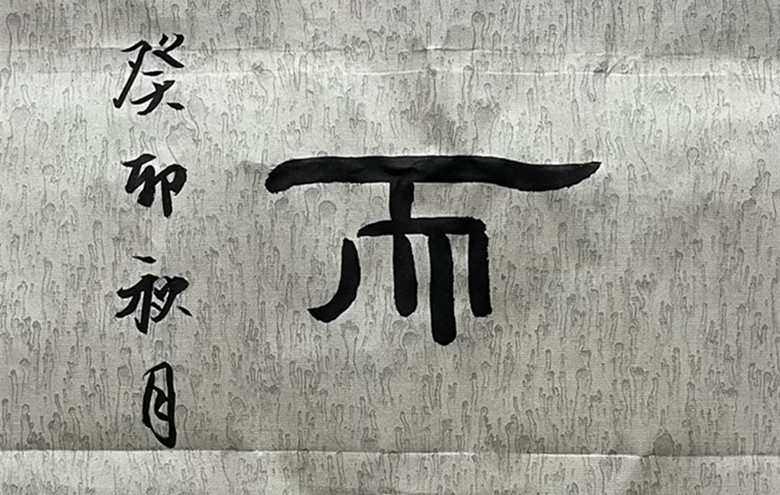 而
癸卯秋月